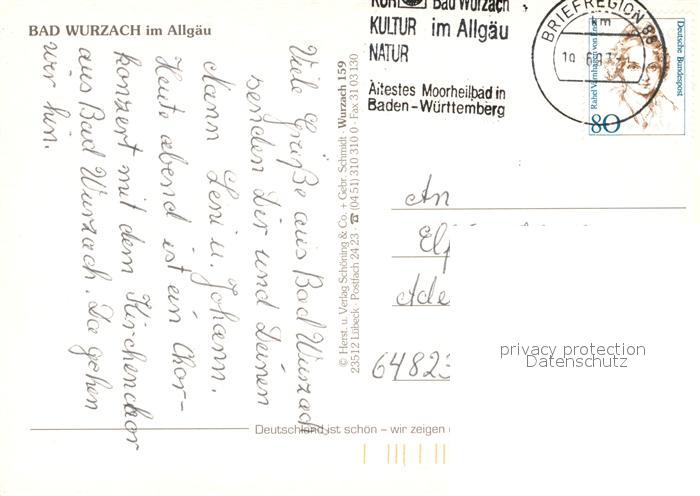 BAD WURZACH im Allgäu
Viele Grüße aus Bad Wurzach
senden Dir und Deinen
Mann Leni u. Johann.
Heute abend ist ein Chor-
konzert mit dem Kirchenchor
aus Bad Wurzach. Da gehen
wir hin.
© Herst. u. Verlag Schöning & Co. + Gebr. Schmidt · Wurzach 159
23512 Lübeck · Postfach 24 23 · ☎ (04 51) 310 310 0 · Fax 31 03 130
Bad Wurzach
KULTUR im Allgäu
NATUR
Ältestes Moorheilbad in
Baden-Württemberg
BRIEFREGION 88
km
Deutsche Bundespost
80
An
64823
privacy protection
Datenschutz
Deutschland ist schön – wir zeigen